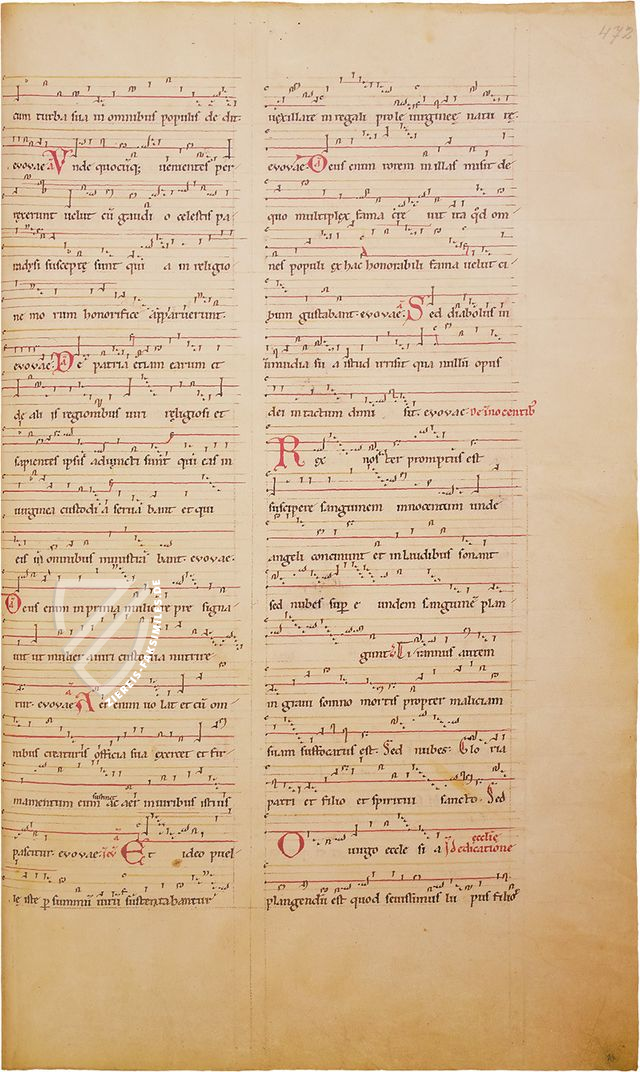 472
cum turba sua in omnibus populis de dit·
evovae· A Vnde quocūq; uenientes per
rexerunt uelut cū gaudi o celestis pa
radysi susceptę sunt qui a in religio
ne mo rum honorifice apparuerunt·
evovae· A De patria etiam earum et
de ali is regionibus uiri religiosi et
sapientes ipsis adiuncti sunt qui eas in
uirginea custodi a serua bant et qui
eis in omnibus ministra bant· evovae·
A Deus enim in prima muliere pre signa
uit ut mulier a uiri custodia nutrire
tur· evovae A Aer enim uo lat et cū om
nibus creaturis officia sua exercet et fir
mamentum eum sustinet ac aer in uiribus istius
pascitur· evovae· A Et ideo puel
lę iste p summū uirū sustentabantur
uexillate in regali prole uirgineę natu rę
evovae· A Deus enim rorem in illas misit de
quo multiplex fama cre uit ita qd om
nes populi ex hac honorabili fama uelut ci
bum gustabant· evovae· A Sed diabolus in
inuidia su a istud irrisit qua nullū opus
dei intactum dimi sit· evovae De inocentib
Rex nos ter promptus est
suscipere sanguinem innocentum unde
angeli concinunt et in laudibus sonant
sed nubes sup e undem sanguinē plan
gunt· Tirannus autem
in graui somno mortis propter maliciam
suam suffocatus est· Sed nubes· Glo ria
patri et filio et spiritui sancto· Sed
O uirgo eccle si a In Dedicatione ecclie
plangendū est quod seuissimus lu pus filios
ZIEREIS-FAKSIMILES.DE